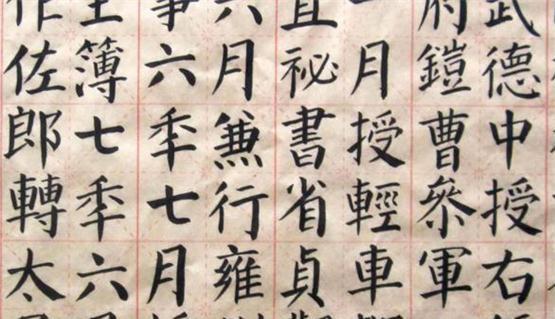 武德中授右
府鎧曹叅軍
月授輕車
直祕書省貞觀
六月兼行雍
事六年七月
主簿七年六月
作佐郎轉太